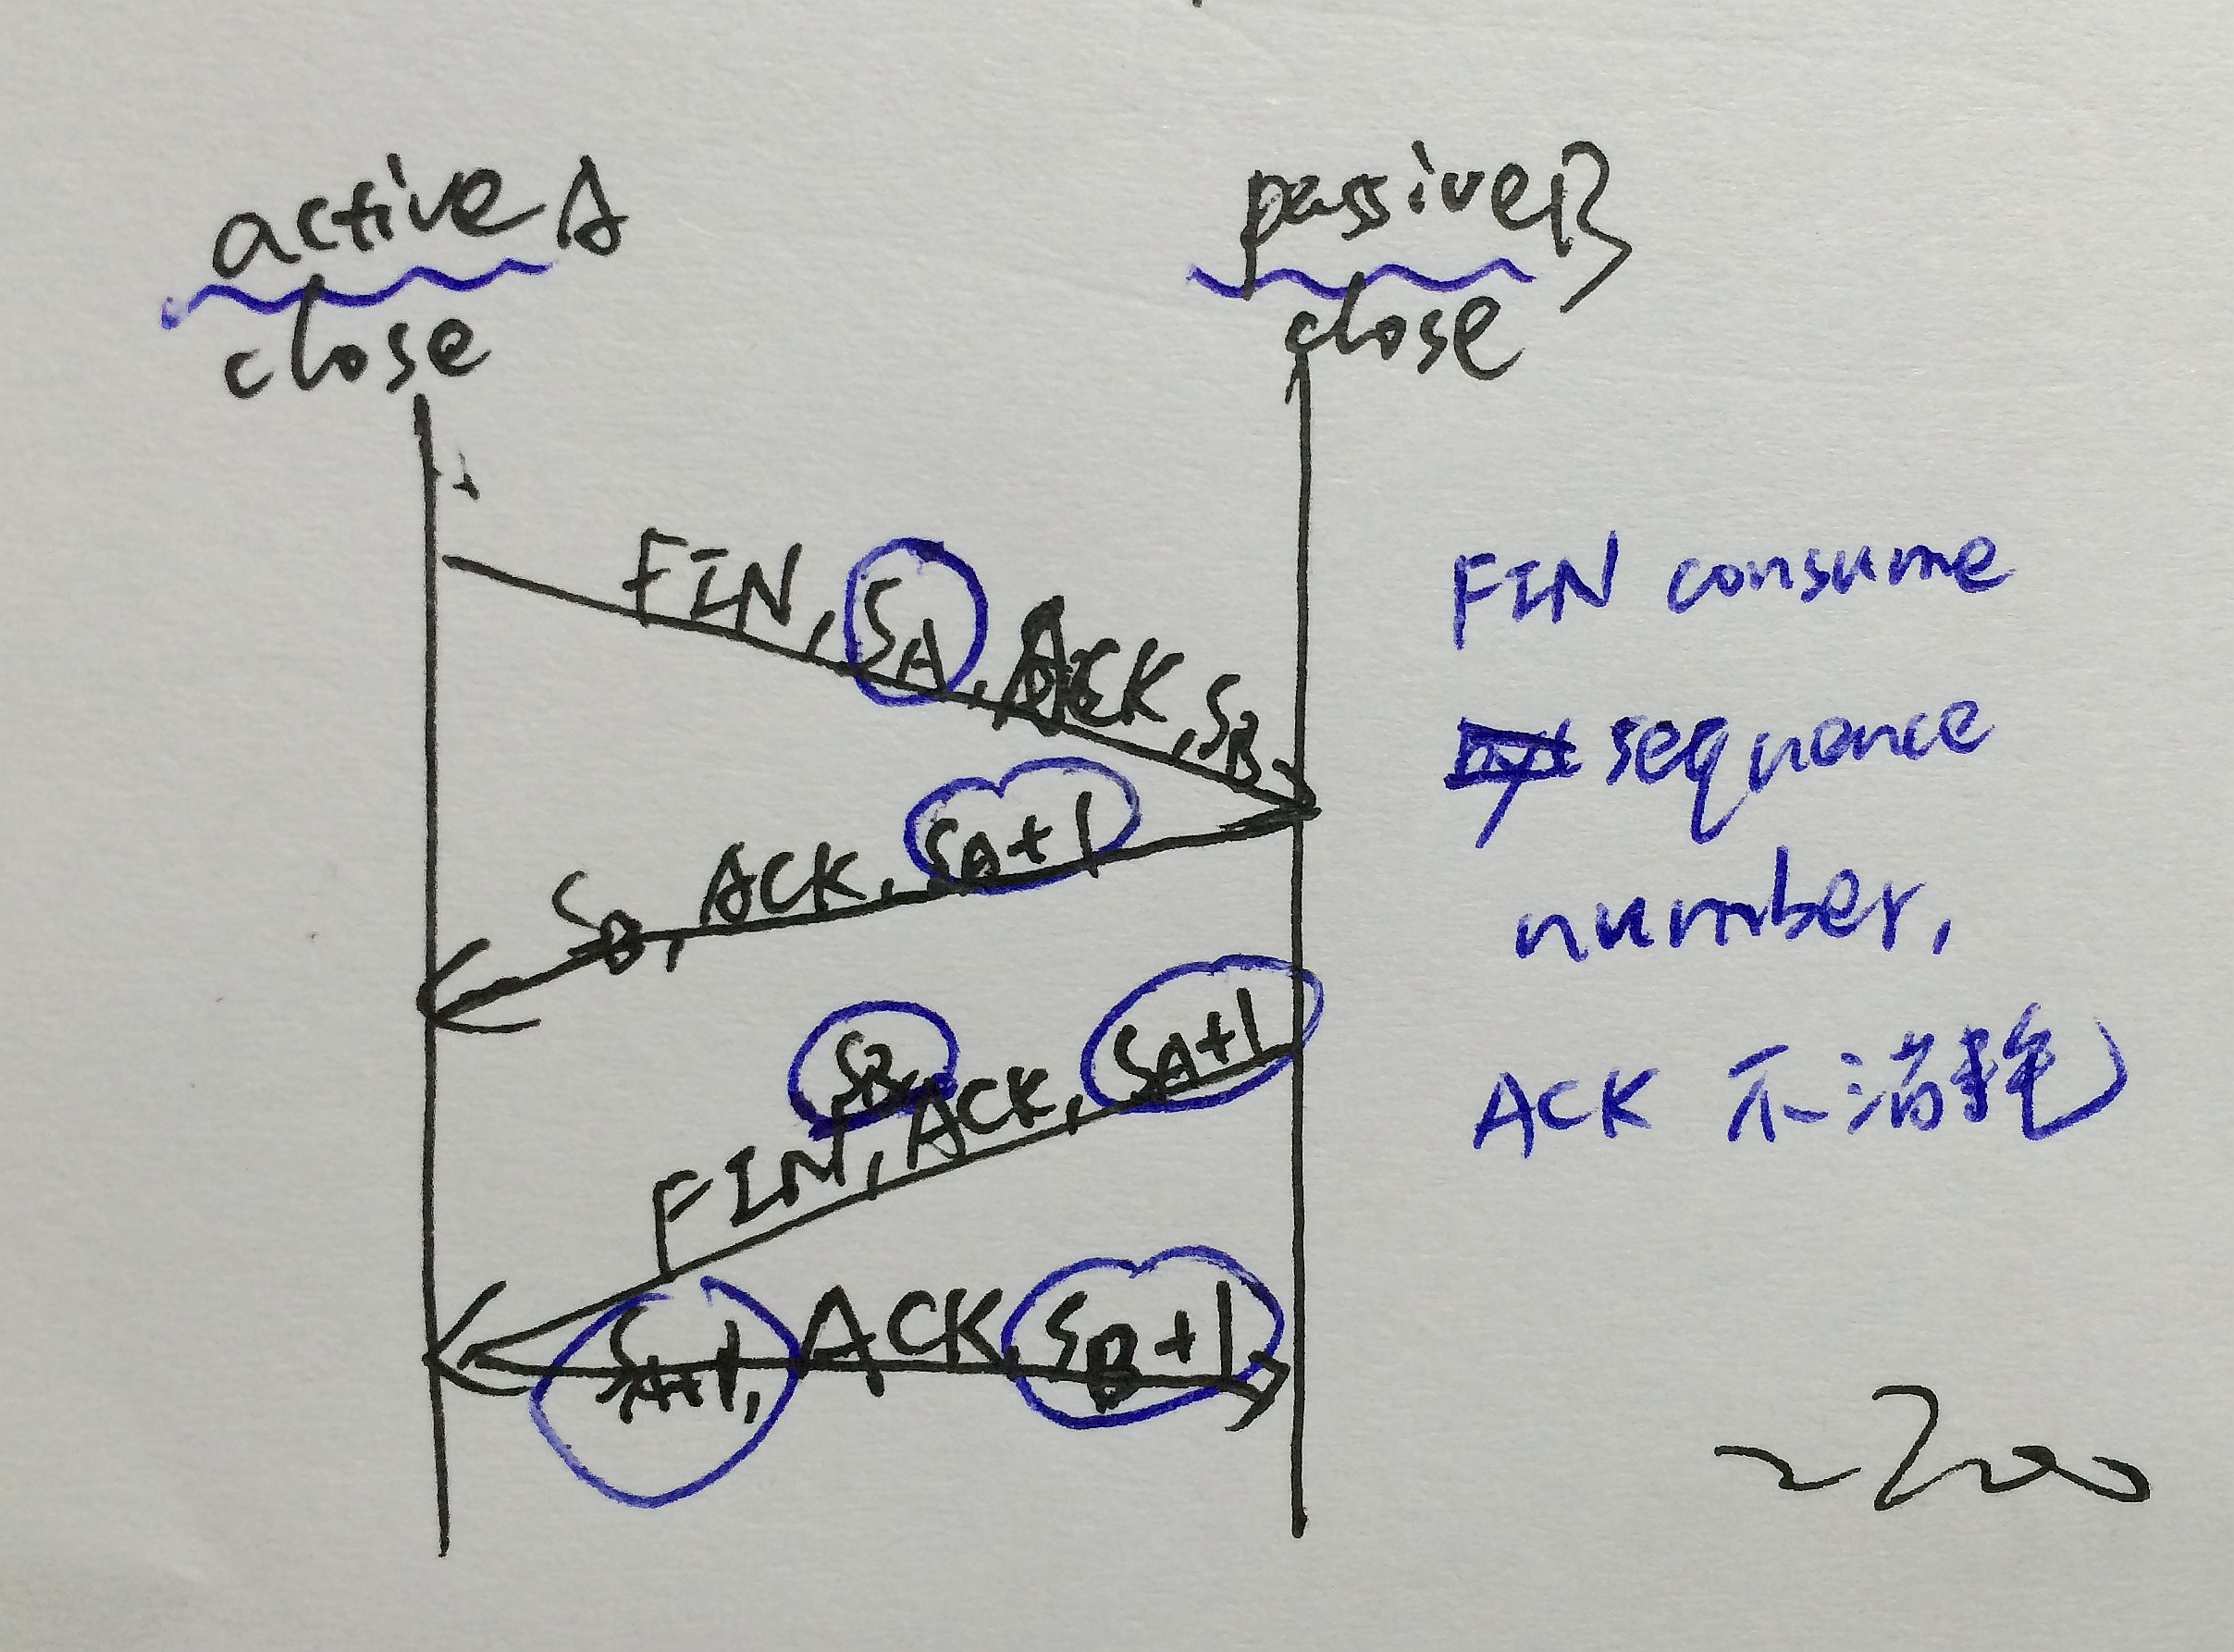 active A
close
passive B
close
FIN, SA, ACK, SB
SB, ACK, SA+1
SB
FIN, ACK, SA+1
SA+1, ACK, SB+1
FIN consume
sequence
number,
ACK 不消耗